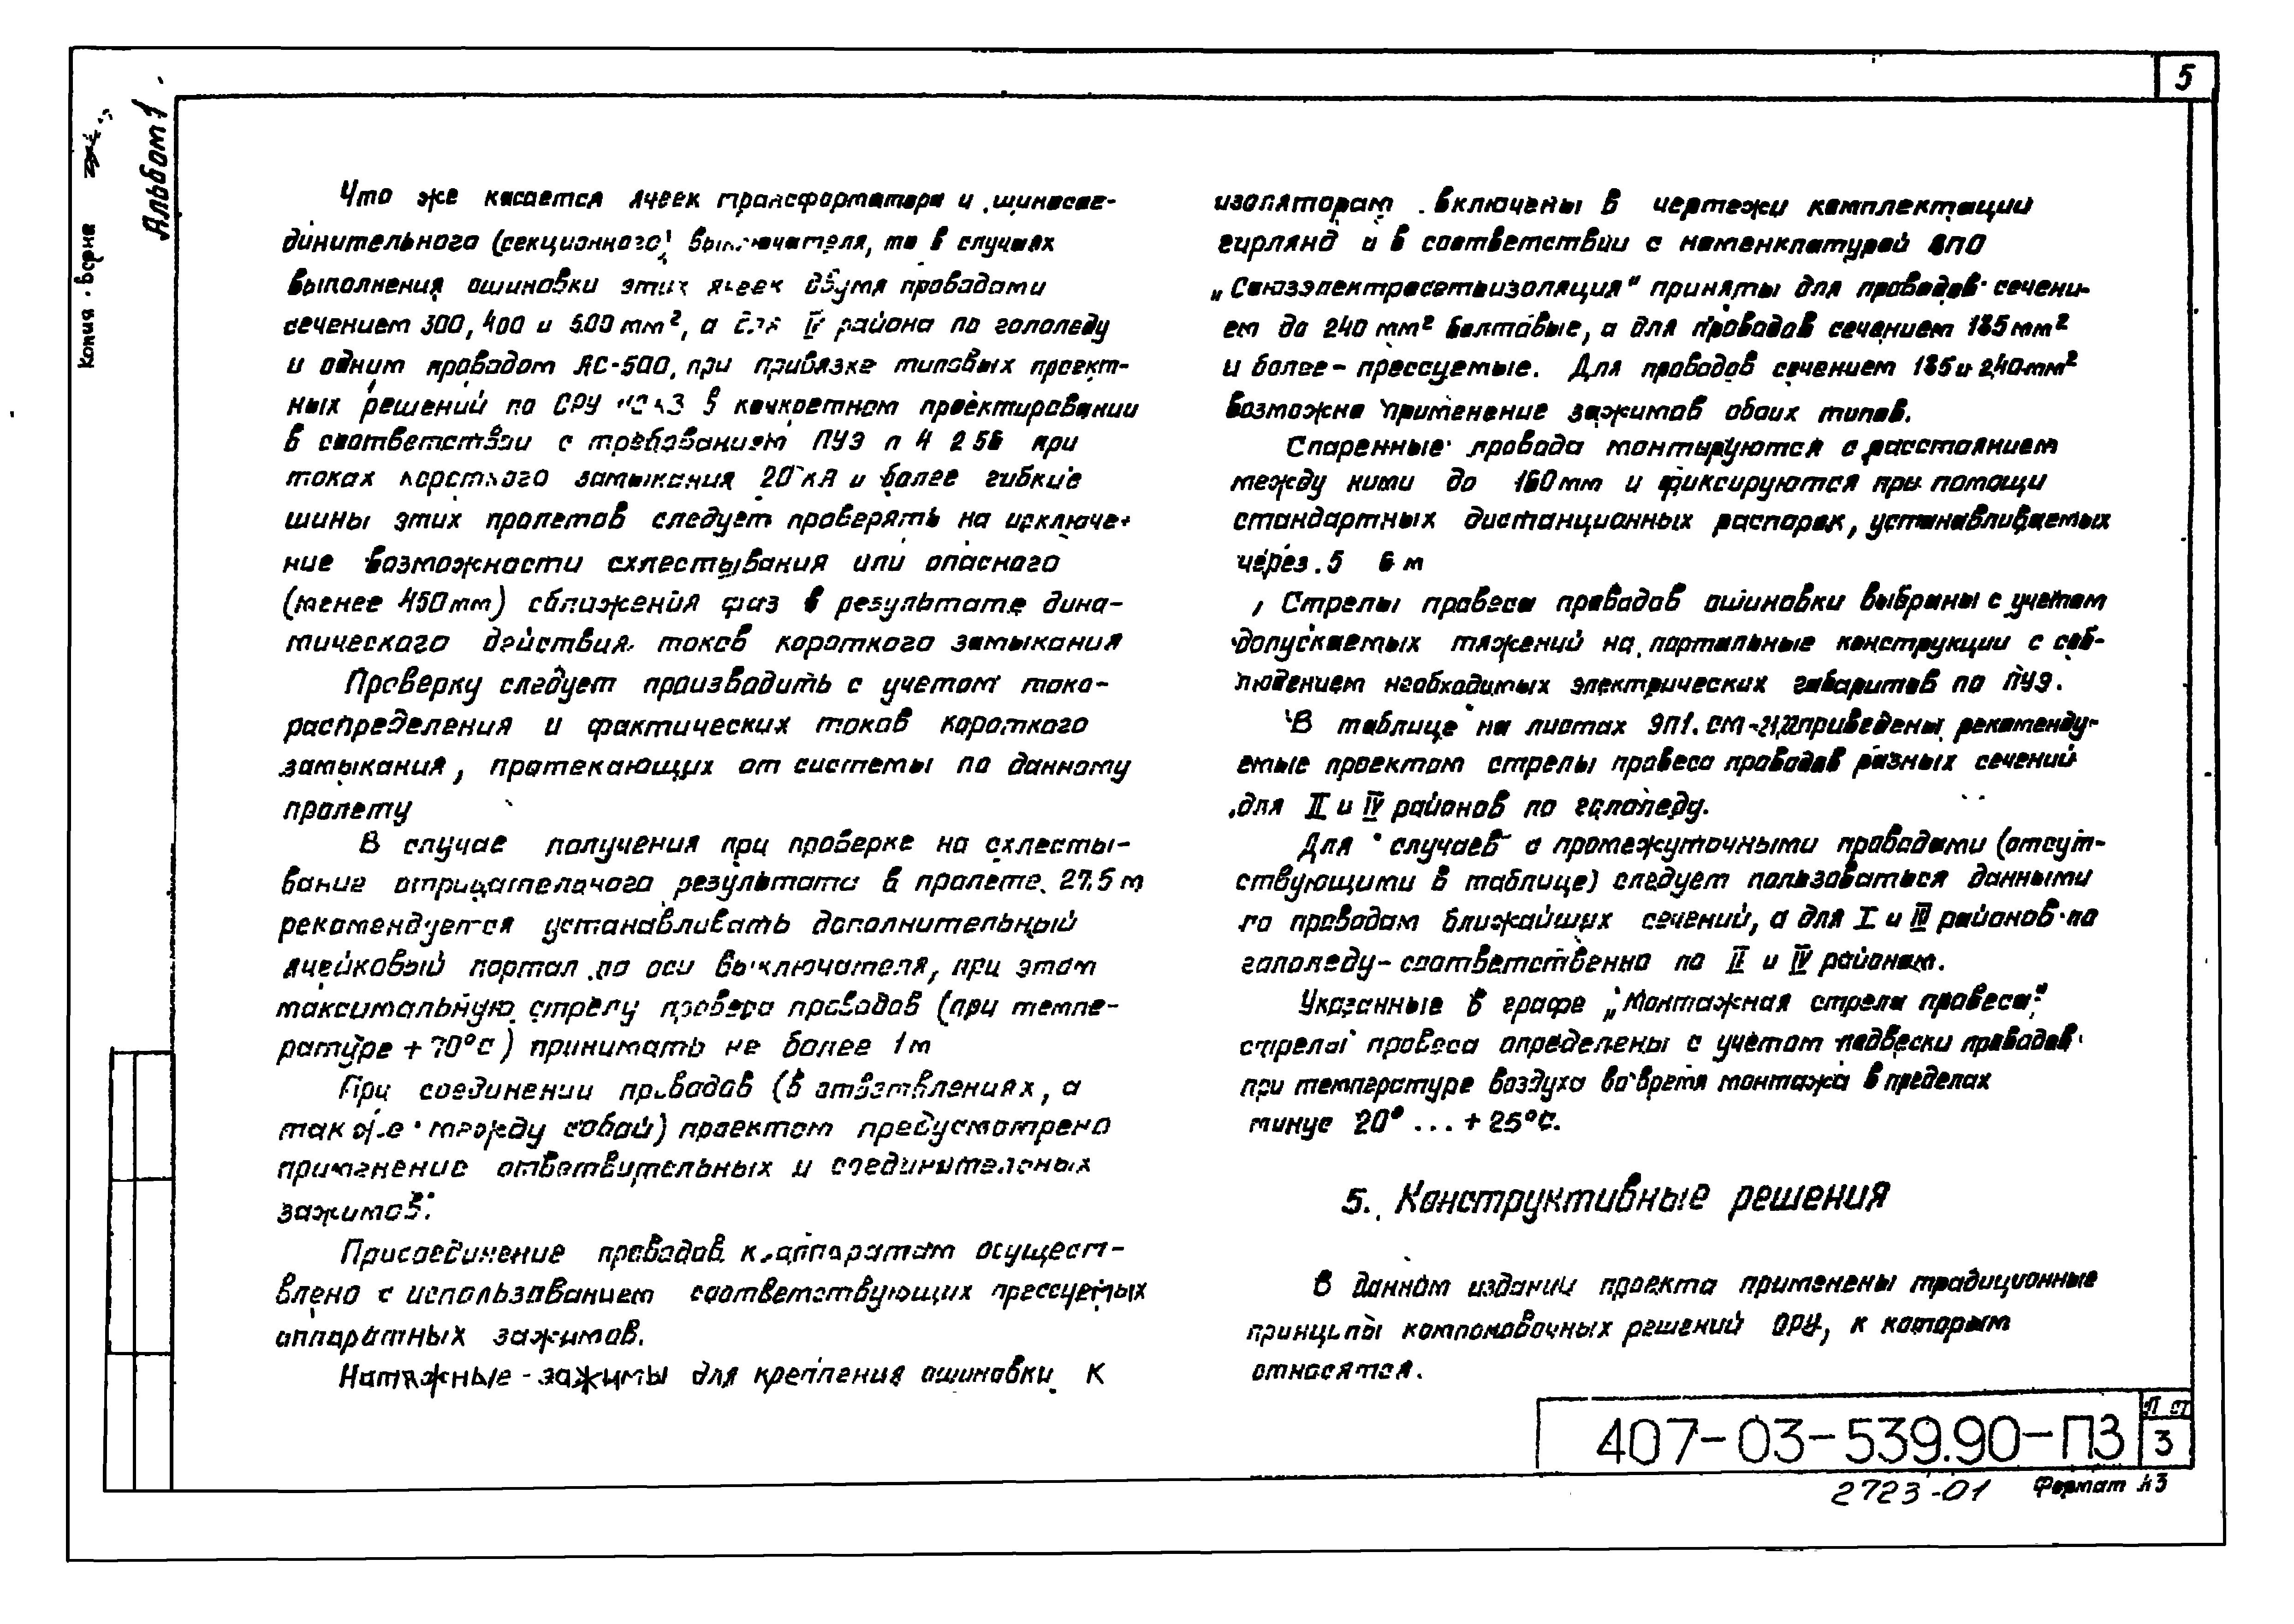 5
Альбом 1
Копия верна
Что же касается ячеек трансформатора и шиносое-
динительного (секционного) выключателя, то в случаях
выполнения ошиновки этих ячеек двумя проводами
сечением 300, 400 и 500 мм², а для IV района по гололеду
и одним проводом АС-500, при привязке типовых проект-
ных решений по ОРУ в конкретном проектировании
в соответствии с требованием ПУЭ п 4 2 56 при
токах короткого замыкания 20 кА и более гибкие
шины этих пролетов следует проверять на исключе-
ние возможности схлестывания или опасного
(менее 450мм) сближения фаз в результате дина-
мического действия токов короткого замыкания
Проверку следует производить с учетом токо-
распределения и фактических токов короткого
замыкания, протекающих от системы по данному
пролету
В случае получения при проверке на схлесты-
вание отрицательного результата в пролете 27.5 м
рекомендуется устанавливать дополнительный
ячейковый портал по оси выключателя, при этом
максимальную стрелу провеса проводов (при темпе-
ратуре +70°С) принимать не более 1 м
При соединении проводов (в ответвлениях, а
также между собой) проектом предусмотрено
применение ответвительных и соединительных
зажимов.
Присоединение проводов к аппаратам осущест-
влено с использованием соответствующих прессуемых
аппаратных зажимов.
Натяжные зажимы для крепления ошиновки к
изоляторам включены в чертежи комплектации
гирлянд и в соответствии с номенклатурой ВПО
„Союзэлектросетьизоляция" приняты для проводов сечени-
ем до 240 мм² болтовые, а для проводов сечением 185мм²
и более - прессуемые. Для проводов сечением 185 и 240мм²
возможно применение зажимов обоих типов.
Спаренные провода монтируются с расстоянием
между ними до 160мм и фиксируются при помощи
стандартных дистанционных распорок, устанавливаемых
через 5 6 м
Стрелы провеса проводов ошиновки выбраны с учетом
допускаемых тяжений на портальные конструкции с соб-
людением необходимых электрических габаритов по ПУЭ.
В таблице на листах ЭП1.СМ- приведены рекоменду-
емые проектом стрелы провеса проводов разных сечений
для II и IV районов по гололеду.
Для случаев с промежуточными проводами (отсут-
ствующими в таблице) следует пользоваться данными
по проводам ближайших сечений, а для I и III районов по
гололеду - соответственно по II и IV районам.
Указанные в графе „Монтажная стрела провеса"
стрелы провеса определены с учетом подвески проводов
при температуре воздуха во время монтажа в пределах
минус 20° ... + 25°С.
5. Конструктивные решения
В данном издании проекта применены традиционные
принципы компоновочных решений ОРУ, к которым
относятся.
407-03-539.90-ПЗ
Лист
3
2723-01 Формат А3